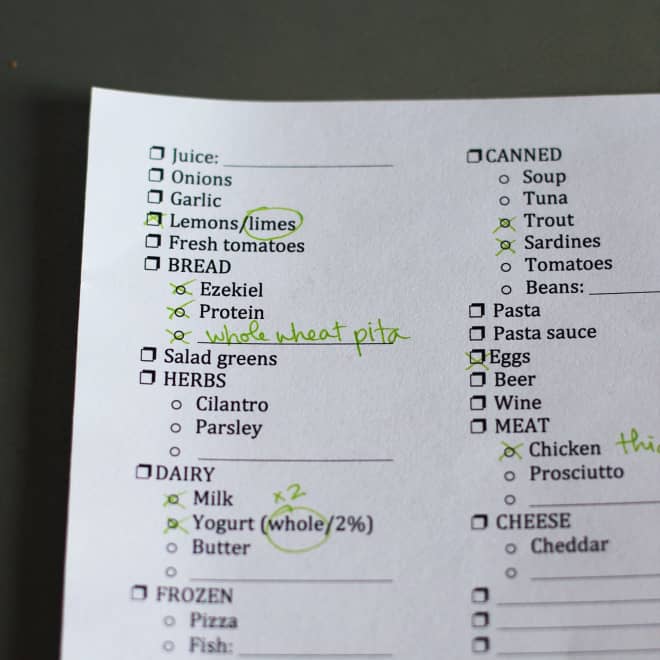 Juice:
Onions
Garlic
Lemons/limes
Fresh tomatoes
BREAD
Ezekiel
Protein
whole wheat pita
Salad greens
HERBS
Cilantro
Parsley
DAIRY
Milk x2
Yogurt (whole/2%)
Butter
FROZEN
Pizza
Fish:
CANNED
Soup
Tuna
Trout
Sardines
Tomatoes
Beans:
Pasta
Pasta sauce
Eggs
Beer
Wine
MEAT
Chicken
Prosciutto
CHEESE
Cheddar